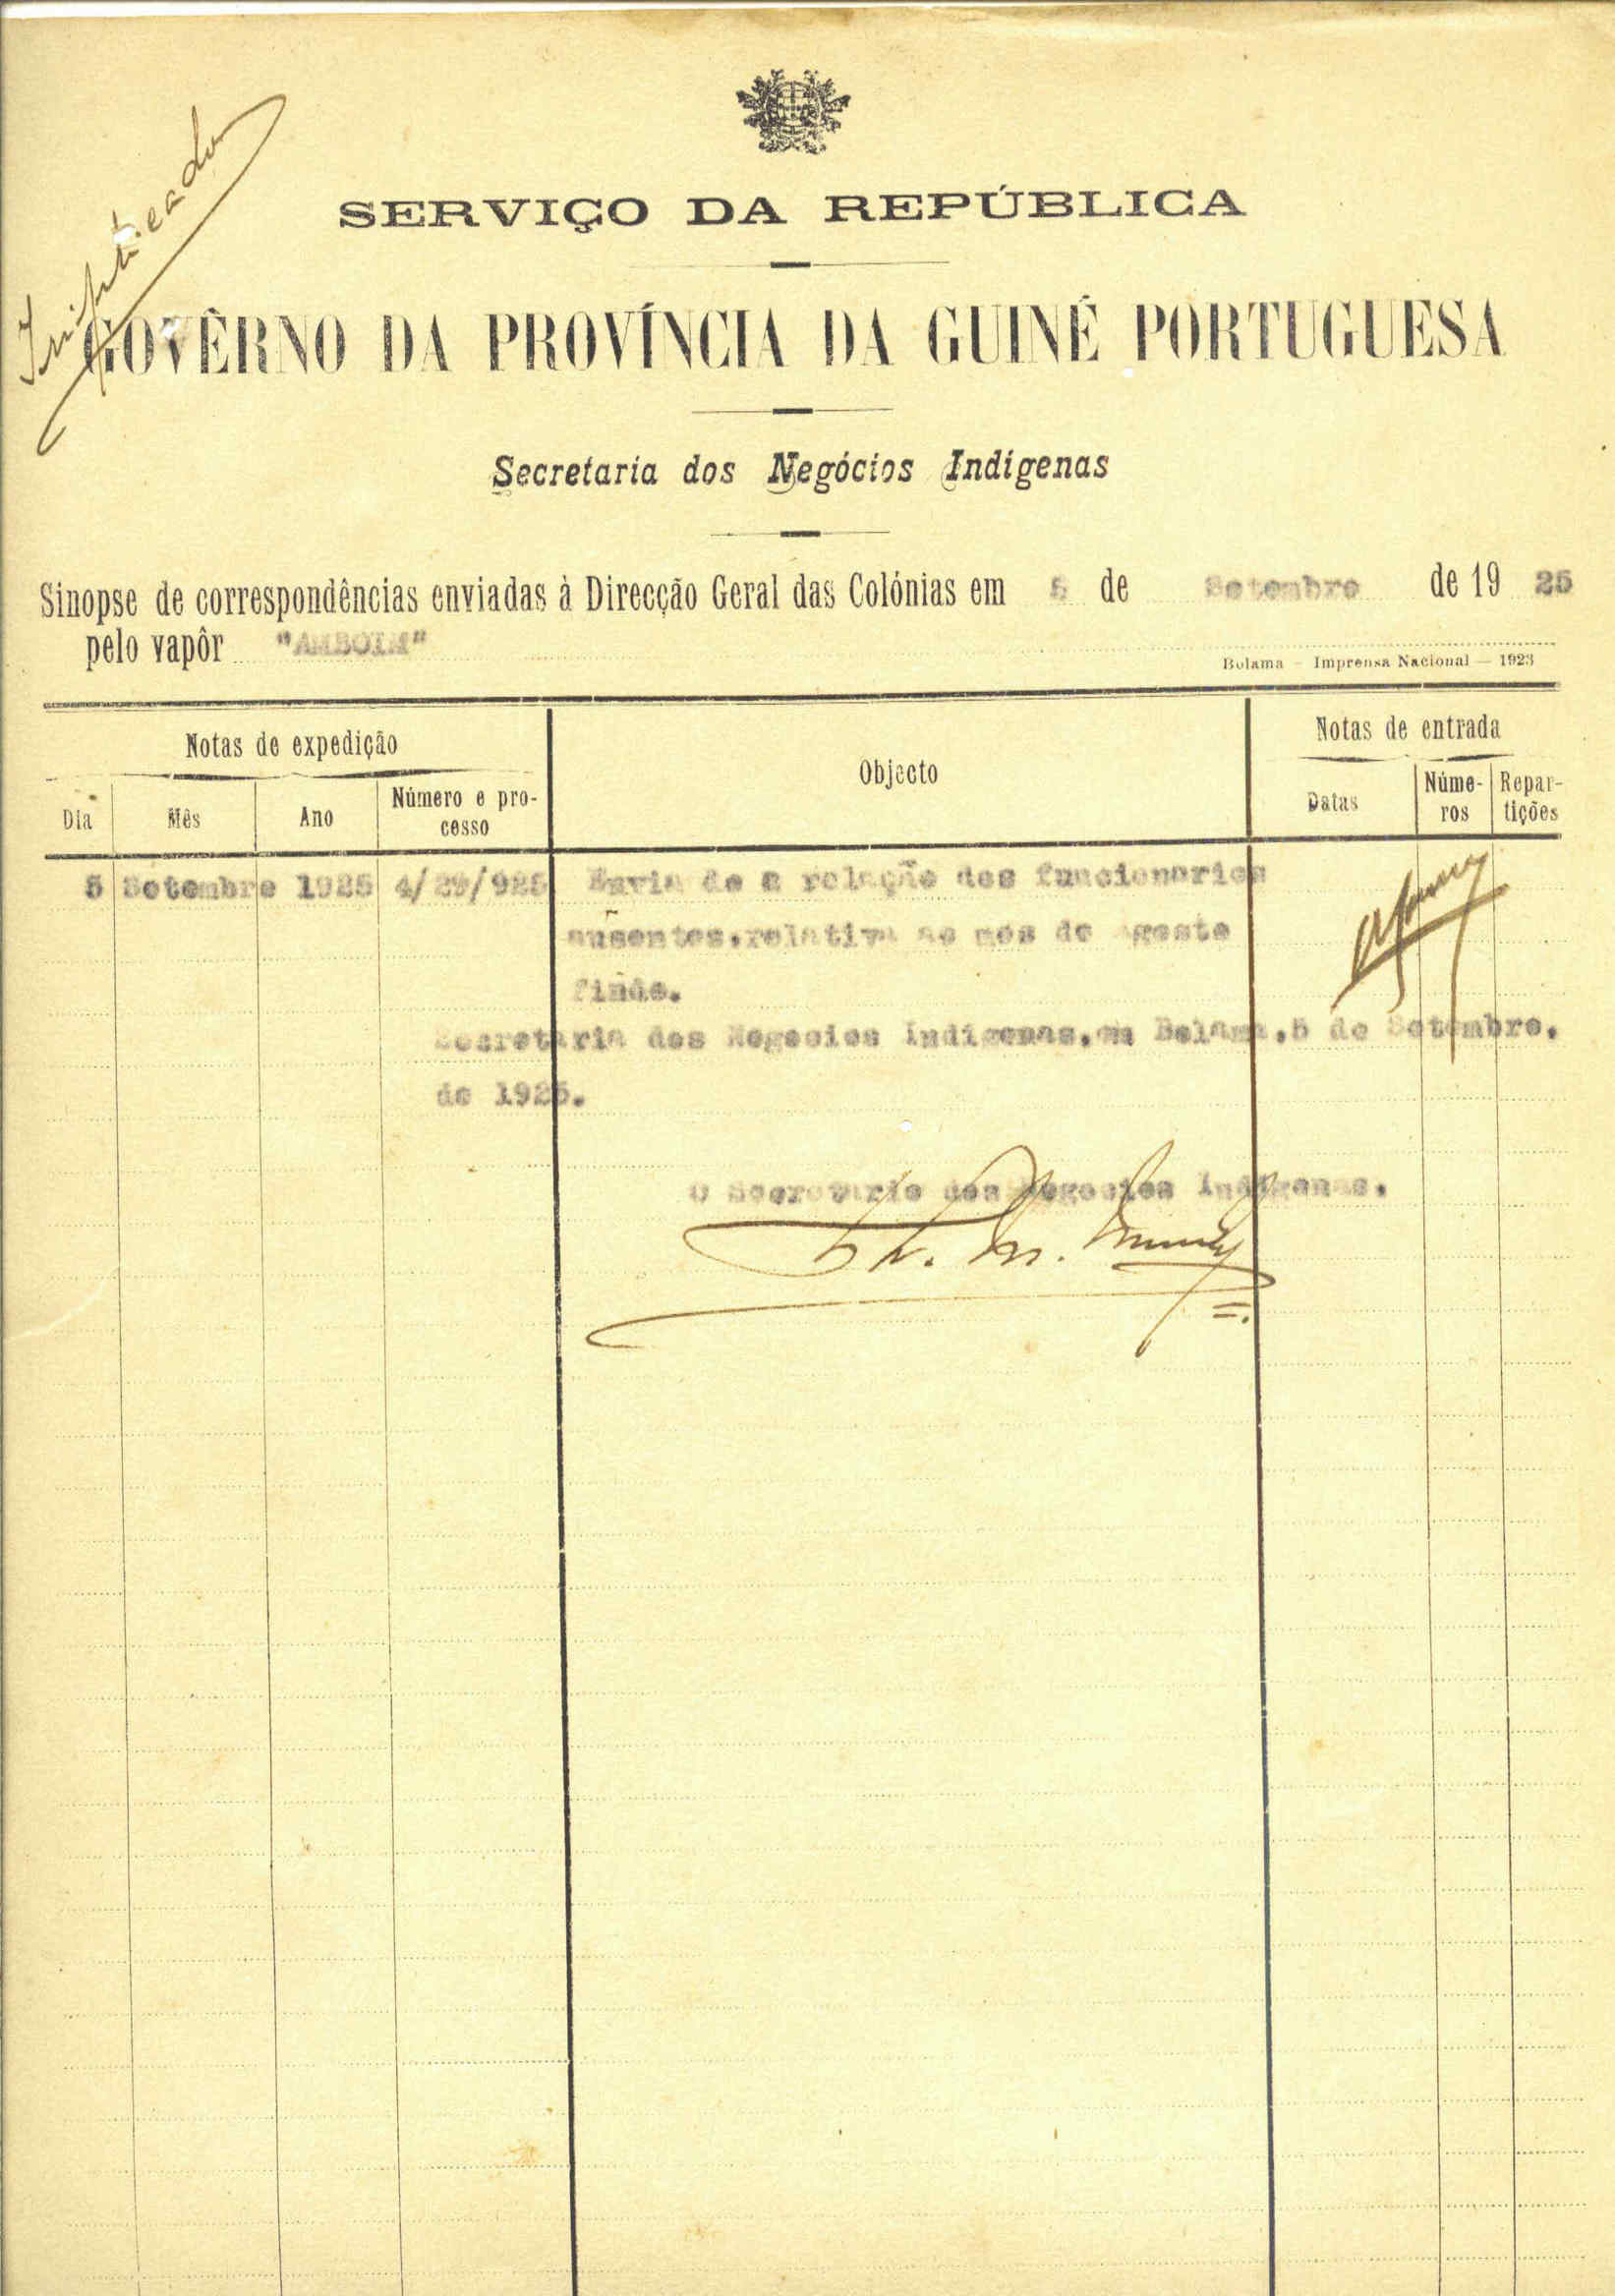 Triplicado
SERVIÇO DA REPÚBLICA
GOVÊRNO DA PROVÍNCIA DA GUINÉ PORTUGUESA
Secretaria dos Negócios Indígenas
Sinopse de correspondências enviadas à Direcção Geral das Colónias em 5 de Setembro de 1925
pelo vapôr "AMBOIM"
Bolama — Imprensa Nacional — 1923
Notas de expedição
Objecto
Notas de entrada
Dia Mês Ano Número e pro-
cesso
Datas Núme-
ros Repar-
tições
5 Setembro 1925 4/29/925 Envia de a relação dos funcionarios
ausentes.relativa ao mes de Agosto
findo.
Secretaria dos Negocios Indigenas.em Bolama.5 de Setembro.
de 1925.
O Secretario dos Negocios Indigenas.